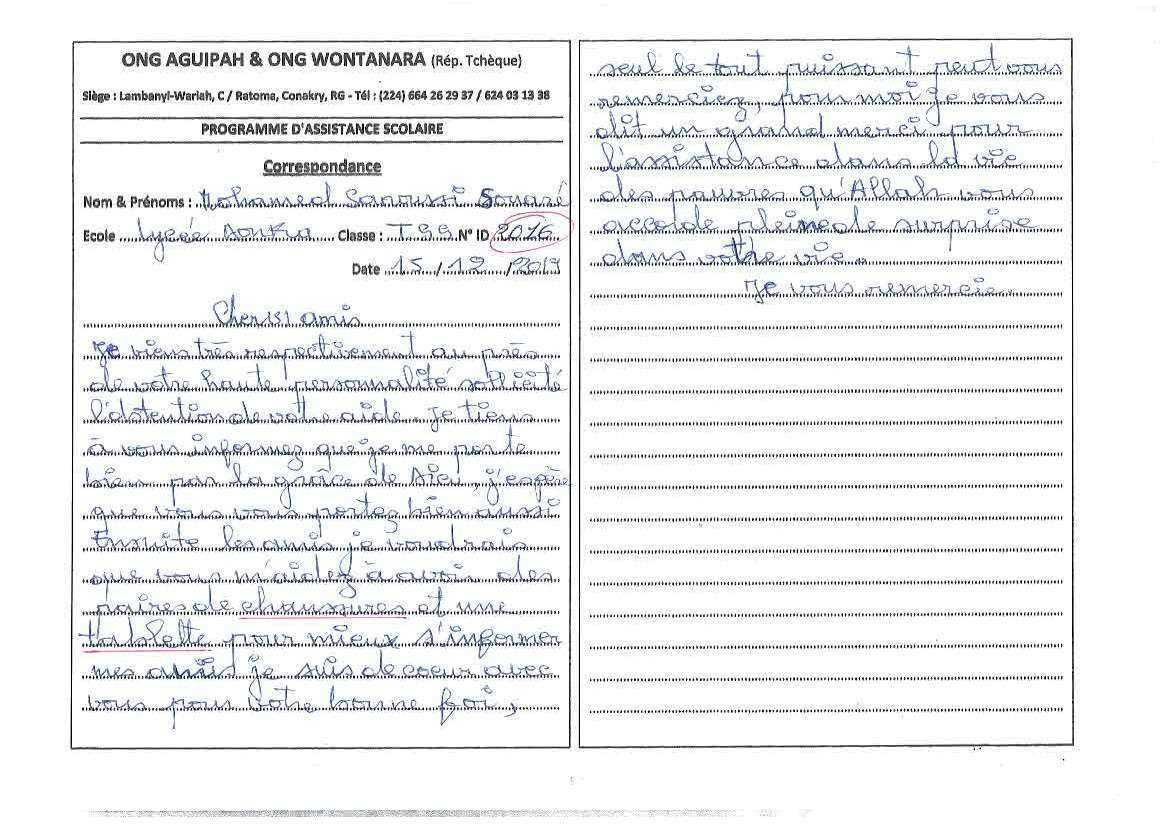 ONG AGUIPAH & ONG WONTANARA (Rép. Tchèque)
Siège : Lambanyi-Wariah, C / Ratoma, Conakry, RG - Tél : (224) 664 26 29 37 / 624 03 13 38
PROGRAMME D'ASSISTANCE SCOLAIRE
Correspondance
Nom & Prénoms : Mohamed Sanoussi Souaré
Ecole Lycée Classe : TSS N° ID 2016
Date 15/12/2019
Cher(s) amis
Je viens très respectivement au près
de votre haute personnalité sollicité
l'obtention de votre aide. Je tiens
à vous informez que je me porte
bien par la grâce de Dieu, j'espère
que vous vous portez bien aussi
Ensuite les amis je voudrais
que vous m'aidez à avoir des
paires de chaussures et une
tablette pour mieux s'informer
mes amis je suis de coeur avec
vous pour votre bonne foi,
seul le tout puissant peut vous
remerciez, pour moi je vous
dit un grand merci pour
l'assistance dans la vie
des pauvres qu'Allah vous
accolde pleine de surprise
dans votre vie.
Je vous remercie.